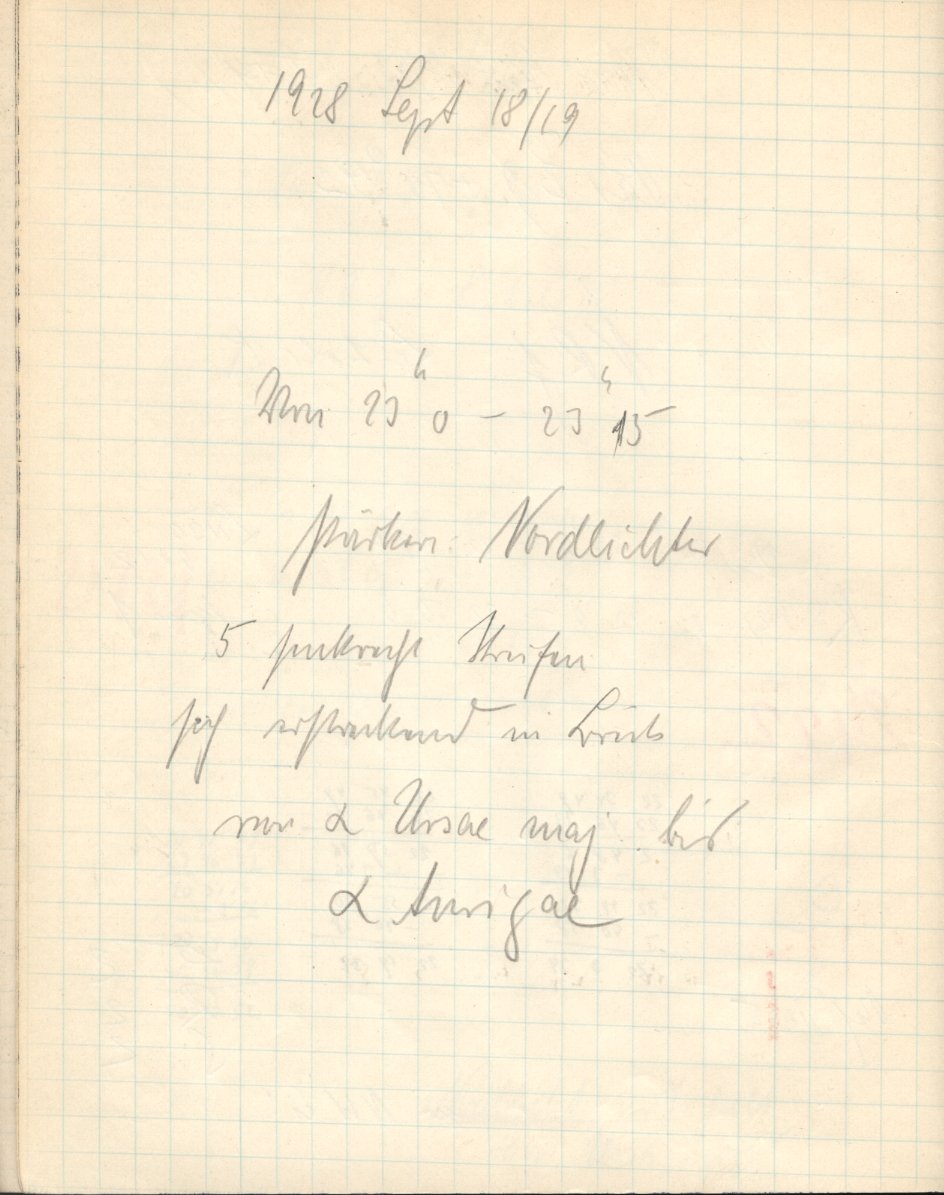 1928 Sept 18/19
Von 23ʰ0 – 23ʰ15
Nordlichter
5 senkrecht Streifen
sich erstreckend in Breite
von α Ursae maj. bis
α Aurigae